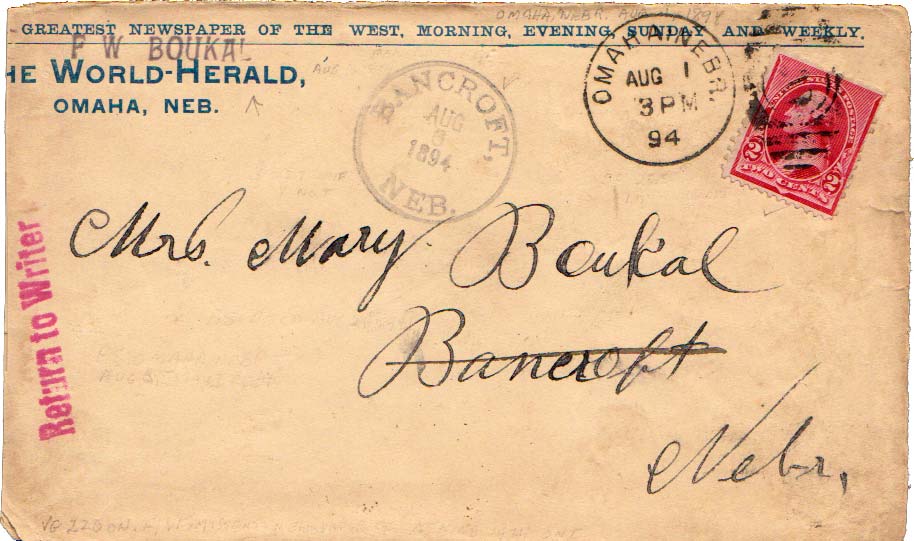 OMAHA, NEBR. AUG 1, 1894
GREATEST NEWSPAPER OF THE WEST, MORNING, EVENING, SUNDAY AND WEEKLY.
F W BOUKAL
HE WORLD-HERALD,
OMAHA, NEB.
BANCROFT,
AUG
3
1894
NEB.
OMAHA, NEBR.
AUG 1
3 PM
94
2 2
TWO CENTS
Return to Writer
Mrs. Mary Boukal
Bancroft
Nebr,